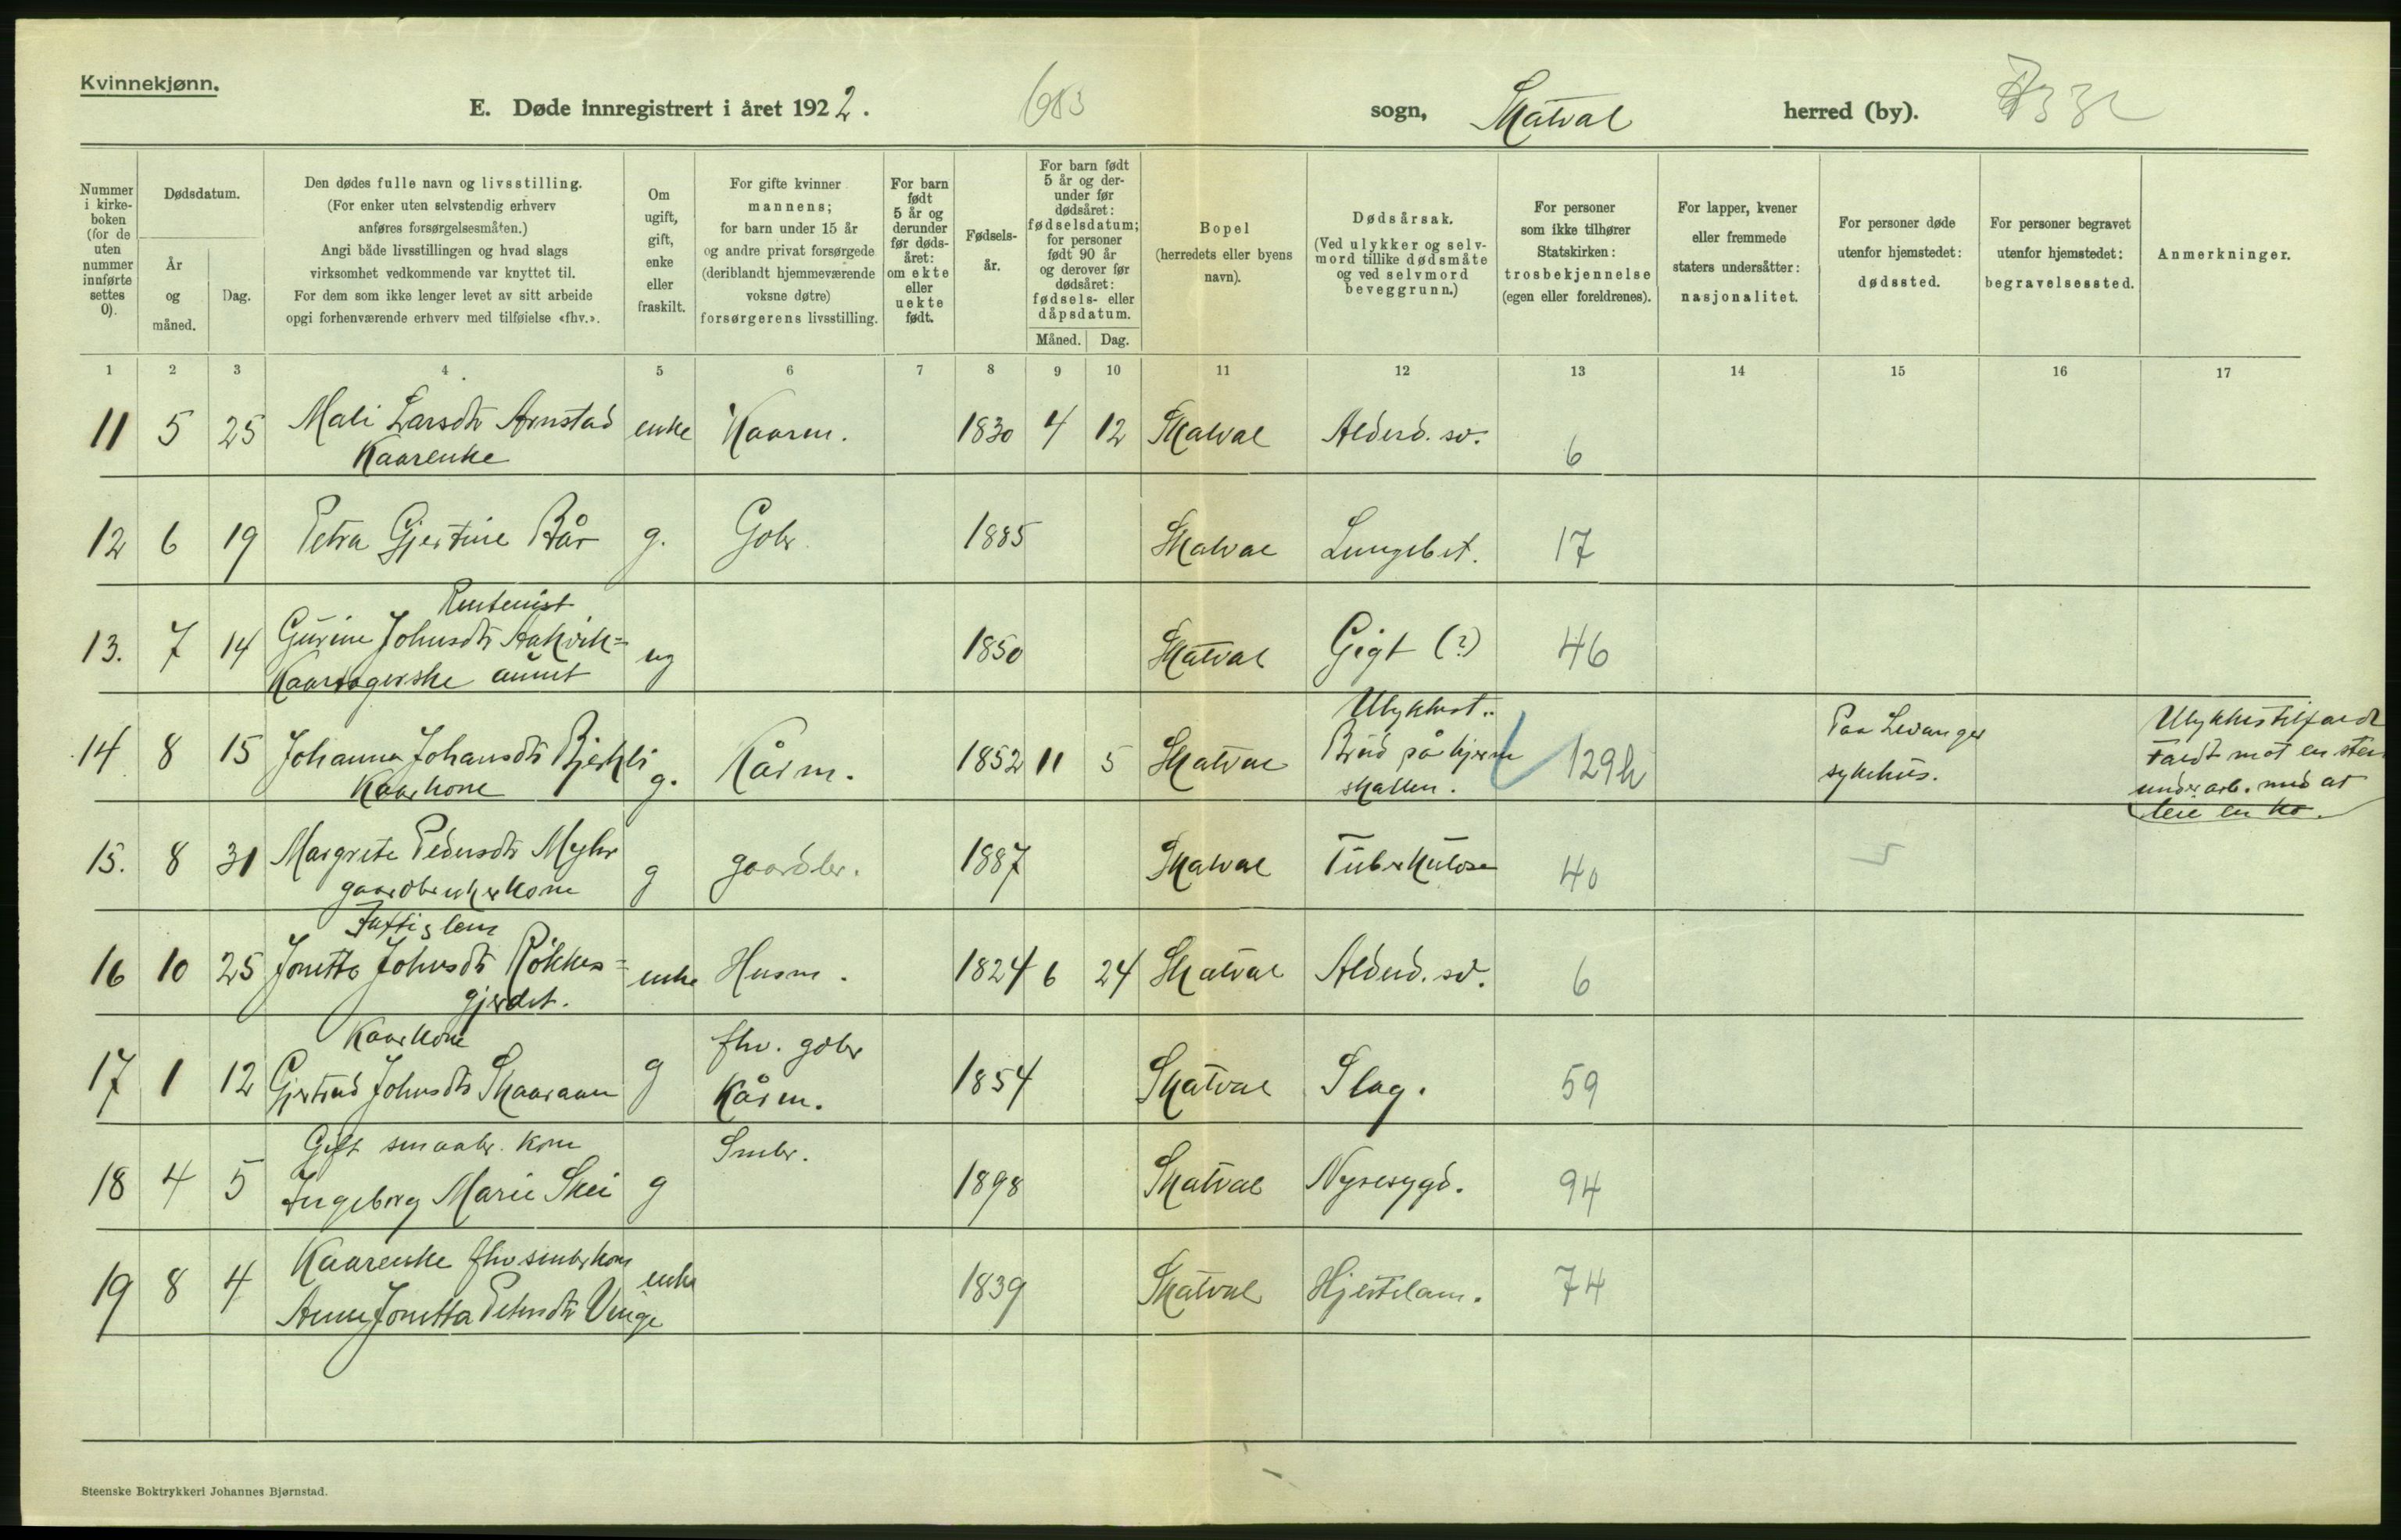 Kvinnekjønn.
E. Døde innregistrert i året 1922.
sogn, Skatval herred (by).
Nummer i kirkeboken (for de uten nummer innførte settes 0).
Dødsdatum.
År og måned.
Dag.
Den dødes fulle navn og livsstilling.
(For enker uten selvstendig erhverv
anføres forsørgelsesmåten.)
Angi både livsstillingen og hvad slags
virksomhet vedkommende var knyttet til.
For dem som ikke lenger levet av sitt arbeide
opgi forhenværende erhverv med tilføielse «fhv.».
Om
ugift,
gift,
enke
eller
fraskilt.
For gifte kvinner
mannens;
for barn under 15 år
og andre privat forsørgede
(deriblandt hjemmeværende
voksne døtre)
forsørgerens livsstilling.
For barn
født
5 år og
derunder
før døds-
året:
om ekte
eller
uekte
født.
Fødsels-
år.
For barn født
5 år og der-
under før
dødsåret:
fødselsdatum;
for personer
født 90 år
og derover før
dødsåret:
fødsels- eller
dåpsdatum.
Måned. Dag.
Bopel
(herredets eller byens
navn).
Dødsårsak.
(Ved ulykker og selv-
mord tillike dødsmåte
og ved selvmord
beveggrunn.)
For personer
som ikke tilhører
Statskirken:
trosbekjennelse
(egen eller foreldrenes).
For lapper, kvener
eller fremmede
staters undersåtter:
nasjonalitet.
For personer døde
utenfor hjemstedet:
dødssted.
For personer begravet
utenfor hjemstedet:
begravelsessted.
Anmerkninger.
1 2 3 4 5 6 7 8 9 10 11 12 13 14 15 16 17
11 5 25 Mali Larsdtr Arnstad enke Kaarm. 1830 4 12 Skatval Alderd. sv. 6
Kaarenke
12 6 19 Petra Gjertine Bår g. Gbr. 1885 Skatval Lungebet. 17
Rentenist
13. 7 14 Gurine Johnsdtr Aakvik= ug 1850 Skatval Gigt (?) 46
Kaartagerske
Ulykkest..
14 8 15 Johanna Johansdtr Bjerkli g. Kårm. 1852 11 5 Skatval Brud på hjerne 129h Paa Levanger Ulykkestilfælde
Kaarkone skallen. sykehus. faldt mot en sten
under arb. med at
leie en ko.
15. 8 31 Margrete Pedersdtr Myhr g gaardbr. 1887 Skatval Tuberkulose 40
gaardbrukerkone
Fattiglem
16 10 25 Jonetta Johnsdtr Røkkes= enke Husm. 1824 6 24 Skatval Alderd. sv. 6
gjerdet.
Kaarkone fhv. gdbr
17 1 12 Gjertrud Johnsdtr Skaaraan g Kårm. 1854 Skatval Slag. 59
Gift smaabr. kone Smbr.
18 4 5 Ingeborg Marie Skei g 1898 Skatval Nyresygd. 94
Kaarenke fhv smbrkone
19 8 4 Anne Jonetta Petersdtr Vinge enke 1839 Skatval Hjertelam. 74
Steenske Boktrykkeri Johannes Bjørnstad.